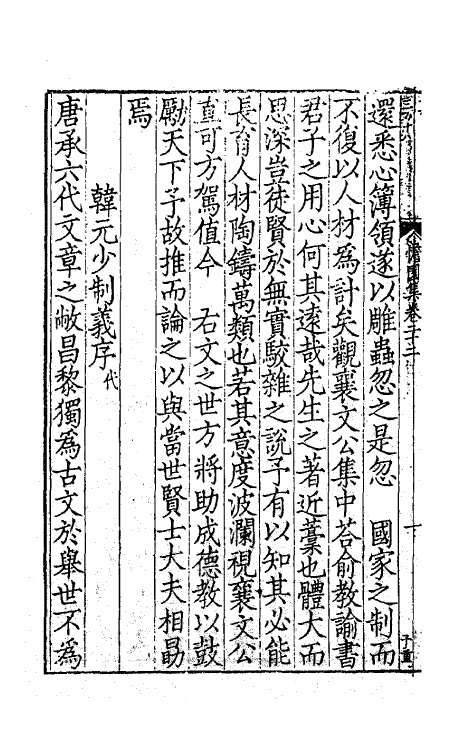 還悉心簿領遂以雕蟲忽之是忽　國家之制而
不復以人材為計矣觀襄文公集中荅俞教諭書
君子之用心何其遠哉先生之著近藁也體大而
思深豈徒賢於無實駮雜之說予有以知其必能
長育人材陶鑄萬類也若其意度波瀾視襄文公
直可方駕值今　右文之世方將助成德教以鼓
勵天下予故推而論之以與當世賢士大夫相勗
焉
韓元少制義序代
唐承六代文章之敝昌黎獨為古文於舉世不為
憺園集卷二十二